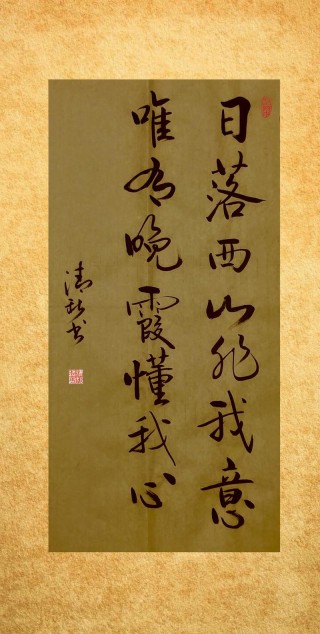 日落西山非我意
唯有晚霞懂我心
清秋书